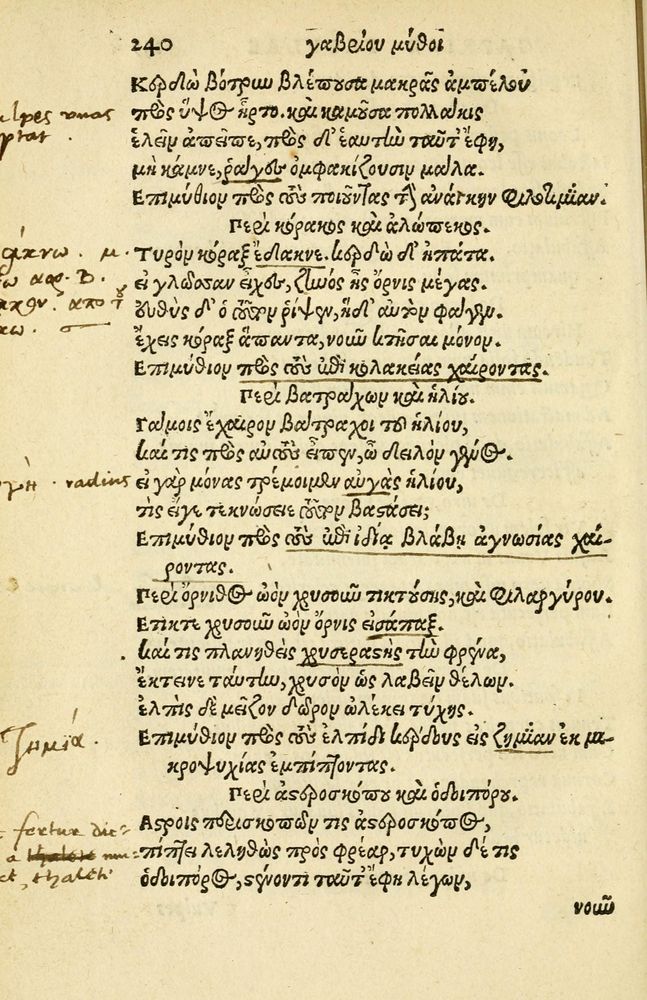 240 γαβρίου μύθοι
Κερδὼ βότρυν βλέπουσα μακρᾶς ἀμπέλου
πρὸς ὕψος ἦρτο. καὶ καμοῦσα πολλάκις
ἑλεῖν ἀπεῖπε, πρὸς δ' ἑαυτὴν ταῦτ' ἔφη,
μὴ κάμνε, ῥᾶγες ὀμφακίζουσιν μάλα.
Επιμύθιον πρὸς τοὺς ποιοῦντας τὴν ἀνάγκην φιλοτιμίαν.
Περὶ κόρακος καὶ ἀλώπεκος.
Τυρὸν κόραξ ἔδακνε. κερδὼ δ' ἠπάτα.
εἰ γλῶσσαν εἶχες, ζηνὸς ἦς ὄρνις μέγας.
εὐθὺς δ' ὁ τοῦτον ῥίψεν, ἡ δ' αὐτὸν φαγεν.
ἔχεις κόραξ ἅπαντα, νοῦν κτῆσαι μόνον.
Επιμύθιον πρὸς τοὺς ἐπὶ κολακείας χαίροντας.
Περὶ βατράχων καὶ ἡλίου.
Γάμοις ἔχαιρον βάτραχοι τοῦ ἡλίου,
καί τις πρὸς αὐτοὺς εἶπεν, ὦ δειλὸν γένος.
εἰ γὰρ μόνας τρέμοιμεν αὐγὰς ἡλίου,
τίς εἴγε τεκνώσειε τοῦτον βαστάσει;
Επιμύθιον πρὸς τοὺς ἐπὶ ἰδίᾳ βλάβῃ ἀγνωσίας χαί-
ροντας.
Περὶ ὄρνιθος ὠὸν χρυσοῦν τικτούσης, καὶ φιλαργύρου.
Ετικτε χρυσοῦν ὠὸν ὄρνις εἰσάπαξ.
καί τις πλανηθεὶς χρυσεραστὴς τὴν φρένα,
ἔκτεινε ταύτην, χρυσὸν ὡς λαβεῖν θέλων.
ἐλπὶς δὲ μεῖζον δῶρον ὠλέκει τύχης.
Επιμύθιον πρὸς τοὺς ἐλπίδι κέρδους εἰς ζημίαν ἐκ μι-
κροψυχίας ἐμπίπτοντας.
Περὶ ἀστροσκόπου καὶ ὁδοιπόρου.
Αστροις περισκοπῶν τις ἀστροσκόπος,
πίπτει λεληθὼς πρὸς φρέαρ, τυχὼν δέ τις
ὁδοιπόρος, στένοντι ταῦτ' ἔφη λέγων,
νοῦν
radius
ζημία.
fertur